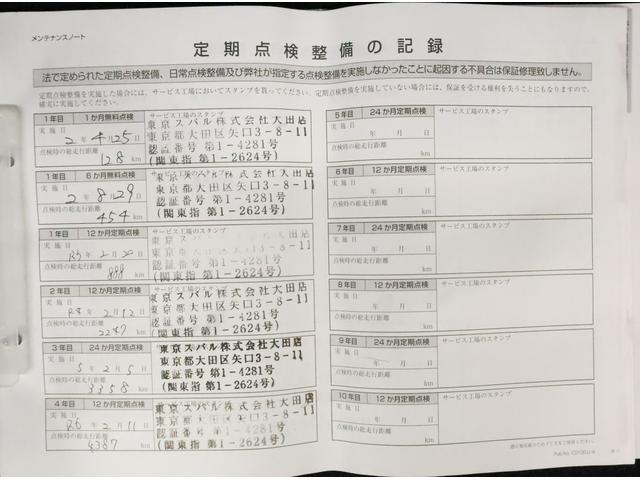 メンテナンスノート
定期点検整備の記録
法で定められた定期点検整備、日常点検整備及び弊社が指定する点検整備を実施しなかったことに起因する不具合は保証修理致しません。
定期点検整備を実施した場合には、サービス工場においてスタンプを貰ってください。定期点検整備を実施していない場合には、保証を受ける権利を失うこともなりますので、
確実に実施してください。
1年目 1か月無料点検 サービス工場のスタンプ
実施日
2年4月25日
点検時の総走行距離
128 km
東京スバル株式会社大田店
東京都大田区矢口3-8-11
認証番号 第1-4281号
(関東指 第1-2624号)
1年目 6か月無料点検
実施日
2年8月29日
点検時の総走行距離
454 km
東京スバル株式会社大田店
東京都大田区矢口3-8-11
認証番号 第1-4281号
(関東指 第1-2624号)
1年目 12か月定期点検 サービス工場のスタンプ
実施日
R3年2月20日
点検時の総走行距離
888 km
東京スバル株式会社大田店
東京都大田区矢口3-8-11
認証番号 第1-4281号
(関東指 第1-2624号)
2年目 12か月定期点検 サービス工場のスタンプ
実施日
R4年2月12日
点検時の総走行距離
2247 km
東京スバル株式会社大田店
東京都大田区矢口3-8-11
認証番号 第1-4281号
(関東指 第1-2624号)
3年目 24か月定期点検
実施日
5年2月5日
点検時の総走行距離
3358 km
東京スバル株式会社大田店
東京都大田区矢口3-8-11
認証番号 第1-4281号
(関東指 第1-2624号)
4年目 12か月定期点検
実施日
R6年2月11日
点検時の総走行距離
km
東京スバル株式会社大田店
東京都大田区矢口3-8-11
認証番号 第1-4281号
(関東指 第1-2624号)
5年目 24か月定期点検 サービス工場のスタンプ
実施日
年 月 日
点検時の総走行距離
km
6年目 12か月定期点検 サービス工場のスタンプ
実施日
年 月 日
点検時の総走行距離
km
7年目 24か月定期点検 サービス工場のスタンプ
実施日
年 月 日
点検時の総走行距離
km
8年目 12か月定期点検 サービス工場のスタンプ
実施日
年 月 日
点検時の総走行距離
km
9年目 24か月定期点検 サービス工場のスタンプ
実施日
年 月 日
点検時の総走行距離
km
10年目 12か月定期点検 サービス工場のスタンプ
実施日
年 月 日
点検時の総走行距離
km